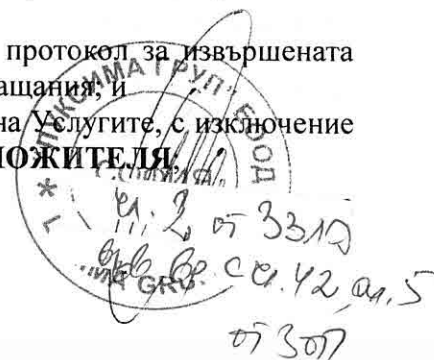 протокол за извършената
ащания; и
на Услугите, с изключение
ОЖИТЕЛЯ;
МА ГРУП" ЕООД
чл. 2 от ЗЗЛД
вр. с чл. 42, ал. 5
от ЗОП